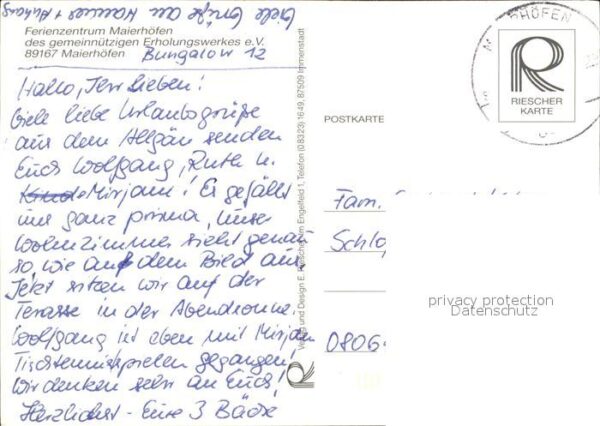 Viele Grüße an Hannes + Anhang
Ferienzentrum Maierhöfen
des gemeinnützigen Erholungswerkes e.V.
89167 Maierhöfen Bungalow 12
Hallo, Ihr Lieben!
Viele liebe Urlaubsgrüße
aus dem Allgäu senden
Euch Wolfgang, Ruth u.
Mirjam! Es gefällt
uns ganz prima, unser
Wohnzimmer sieht genau
so wie auf dem Bild aus.
Jetzt sitzen wir auf der
Terasse in der Abendsonne.
Wolfgang ist eben mit Mirjam
Tischtennisspielen gegangen!
Wir denken sehr an Euch!
Herzlichst - Eure 3
Verlag und Design E. Riescher, Im Engelfeld 1, Telefon (08323) 1649, 87509 Immenstadt
R
POSTKARTE
HÖFEN
R
RIESCHER
KARTE
Fam.
Schlo
0806
privacy protection
Datenschutz